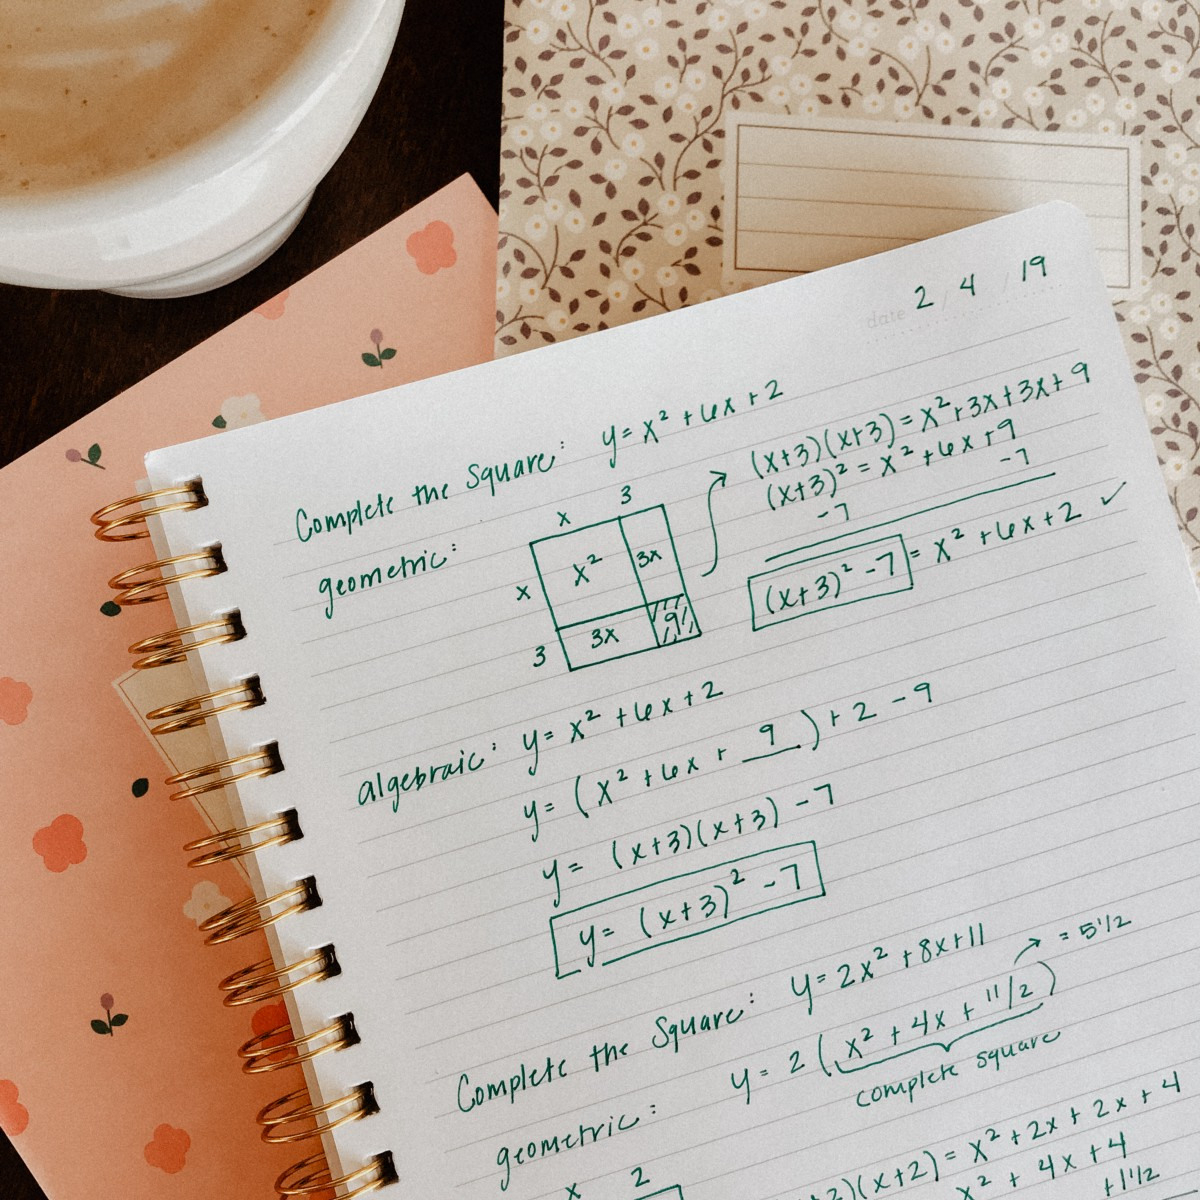 date 2 / 4 / 19
Complete the Square: y = x² + 6x + 2
geometric:
x 3
x x² 3x
3 3x 9
(x+3)(x+3) = x² + 3x + 3x + 9
(x+3)² = x² + 6x + 9
-7 -7
(x+3)² - 7 = x² + 6x + 2 ✓
algebraic: y = x² + 6x + 2
y = (x² + 6x + 9) + 2 - 9
y = (x+3)(x+3) - 7
y = (x+3)² - 7
Complete the Square: y = 2x² + 8x + 11
geometric: y = 2(x² + 4x + 11/2) → = 5 1/2
complete square
x 2
2)(x+2) = x² + 2x + 2x + 4
x² + 4x + 4
+1 1/2